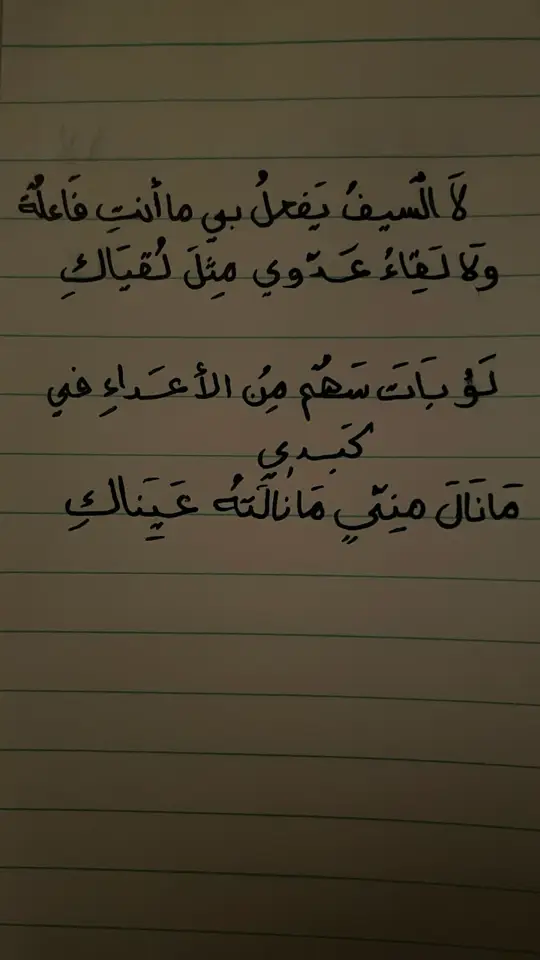 لَا السّيفُ يَفعلُ بي ما أنتِ فَاعلةٌ
ولَا لَقِاءُ عَدّوي مِثلَ لُقيَاكِ
لَوُ بَاتَ سَهمٌ مِنُ الأعَداءِ في
كَبدِي
مَا نَالَ مِنّي مَا نالَتهُ عَينَاكِ